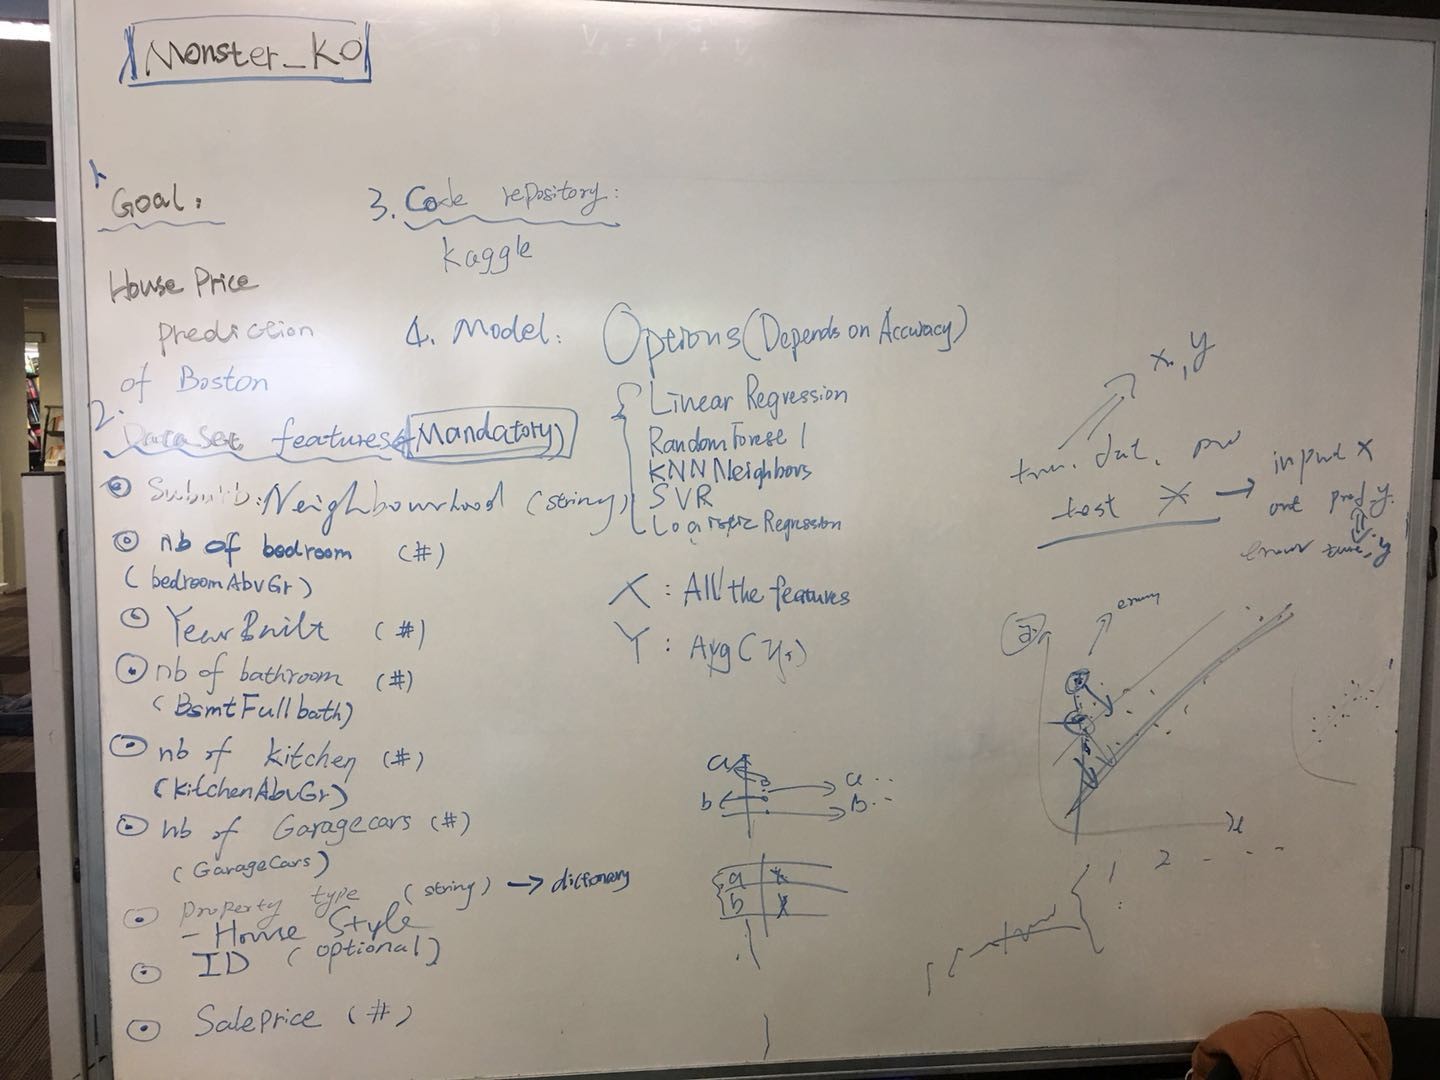 Monster_KO
1.
Goal:
House Price
prediction
of Boston
2.
Dataset features (Mandatory)
Suburb: Neighbourhood (string)
nb of bedroom (#)
(bedroomAbvGr)
YearBuilt (#)
nb of bathroom (#)
(BsmtFullbath)
nb of kitchen (#)
(kitchenAbvGr)
nb of Garagecars (#)
(GarageCars)
Property type (string) → dictionary
- House Style
ID (optional)
SalePrice (#)
3. Code repository:
kaggle
4. Model: Options (Depends on Accuracy)
Linear Regression
Random Forest
KNN Neighbors
SVR
Logistic Regression
X: All the features
Y:
a
b
a
B
a
b
x, y
test X → input X
out
y
1 2 - - -